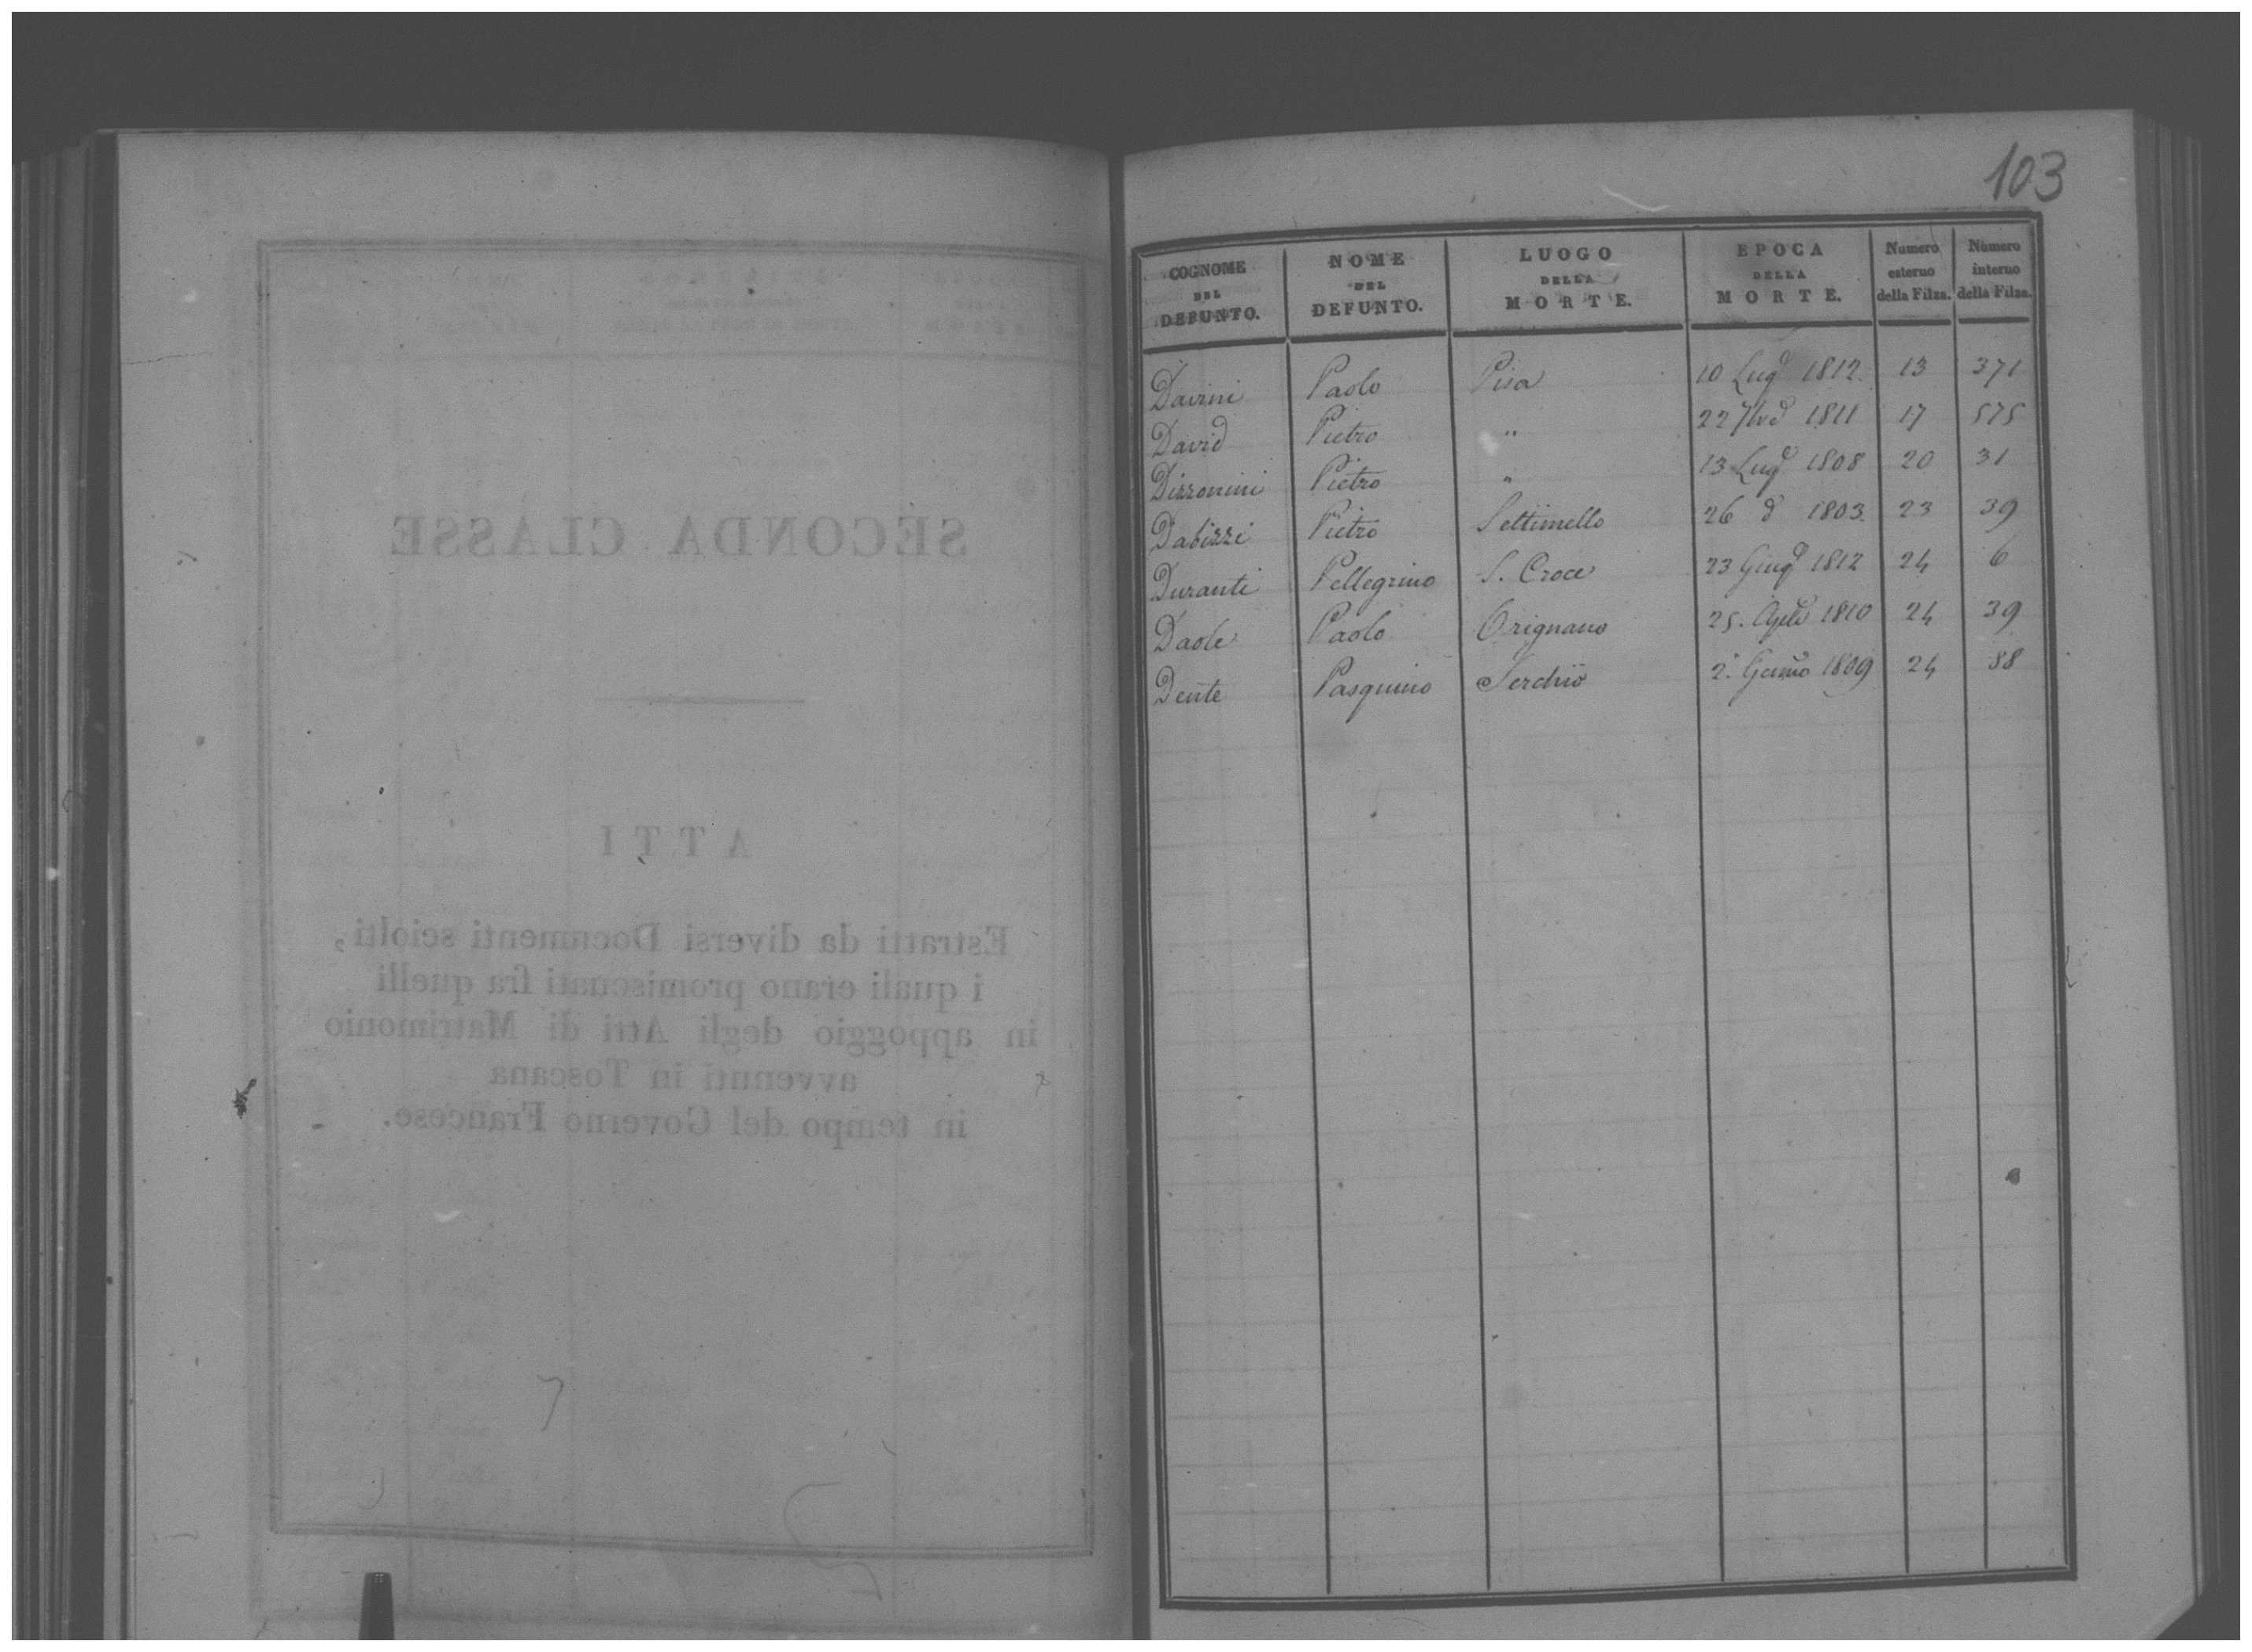 SECONDA CLASSE
ATTI
Estratti da diversi Documenti sciolti,
i quali erano promiscuati fra quelli
in appoggio degli Atti di Matrimonio
avvenuti in Toscana
in tempo del Governo Francese.
103
COGNOME DEL DEFUNTO. NOME DEL DEFUNTO. LUOGO DELLA MORTE. EPOCA DELLA MORTE. Numero esterno della Filza. Numero interno della Filza.
Davini Paolo Pisa 10 Lugo 1812. 13 371
David Pietro " 22 7bre 1811 17 575
Dizzonini Pietro " 13 Lugo 1808 20 31
Dabizzi Pietro Settimello 26 do 1803. 23 39
Duranti Pellegrino S. Croce 23 Giugo 1812 24 6
Daole Paolo Orignano 25. Aple 1810 24 39
Dente Pasquino Serchio 2. Genno 1809 24 88